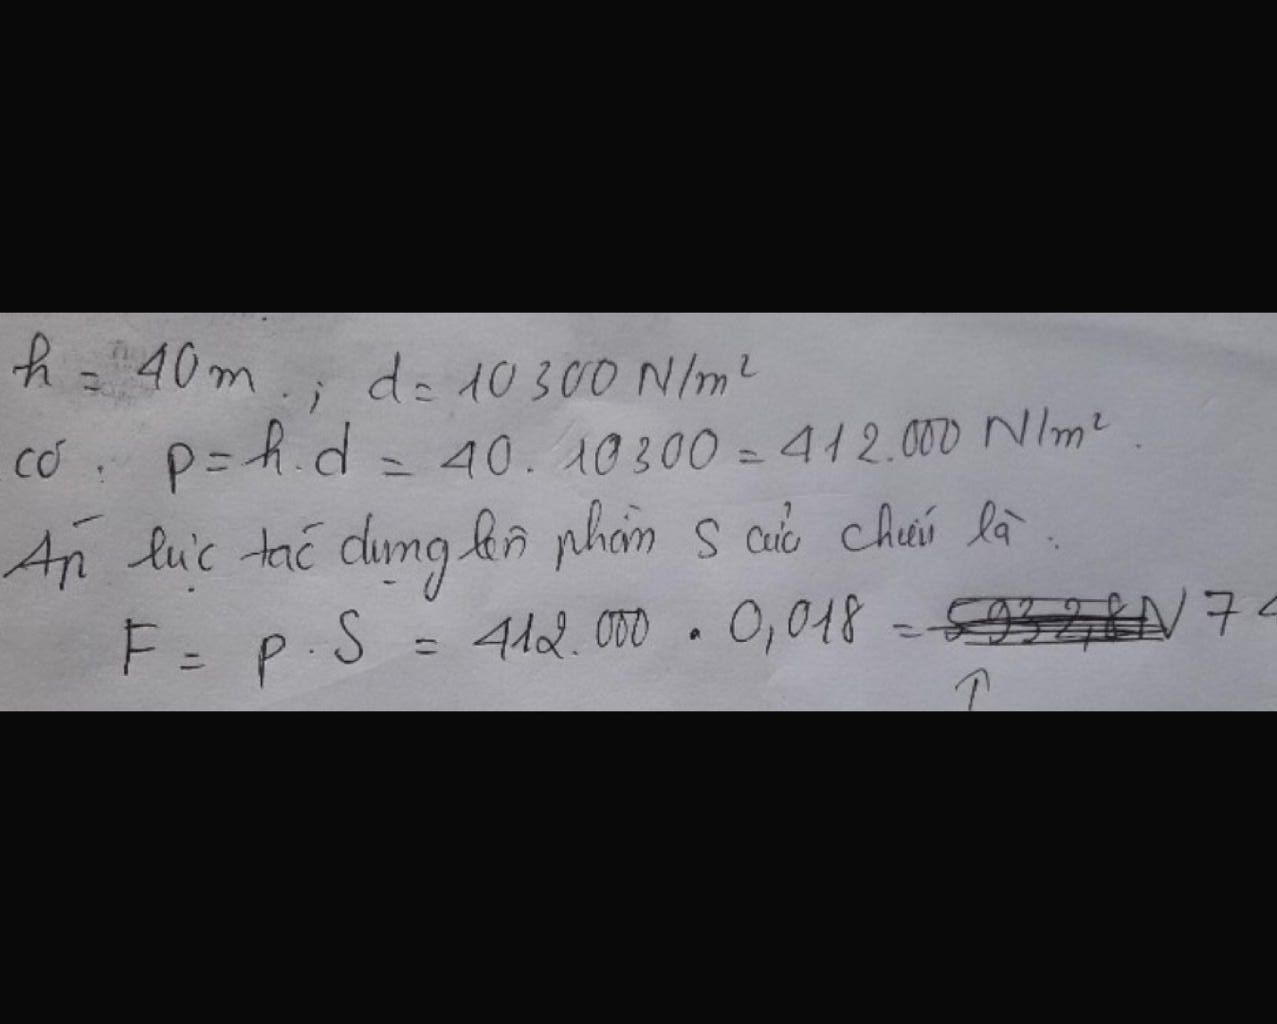 h = 40m.; d = 10300 N/m²
có. p = h.d = 40. 10300 = 412.000 N/m².
Áp lực tác dụng lên phần S của là.
F = p.S = 412.000 . 0,018 = 7
↑